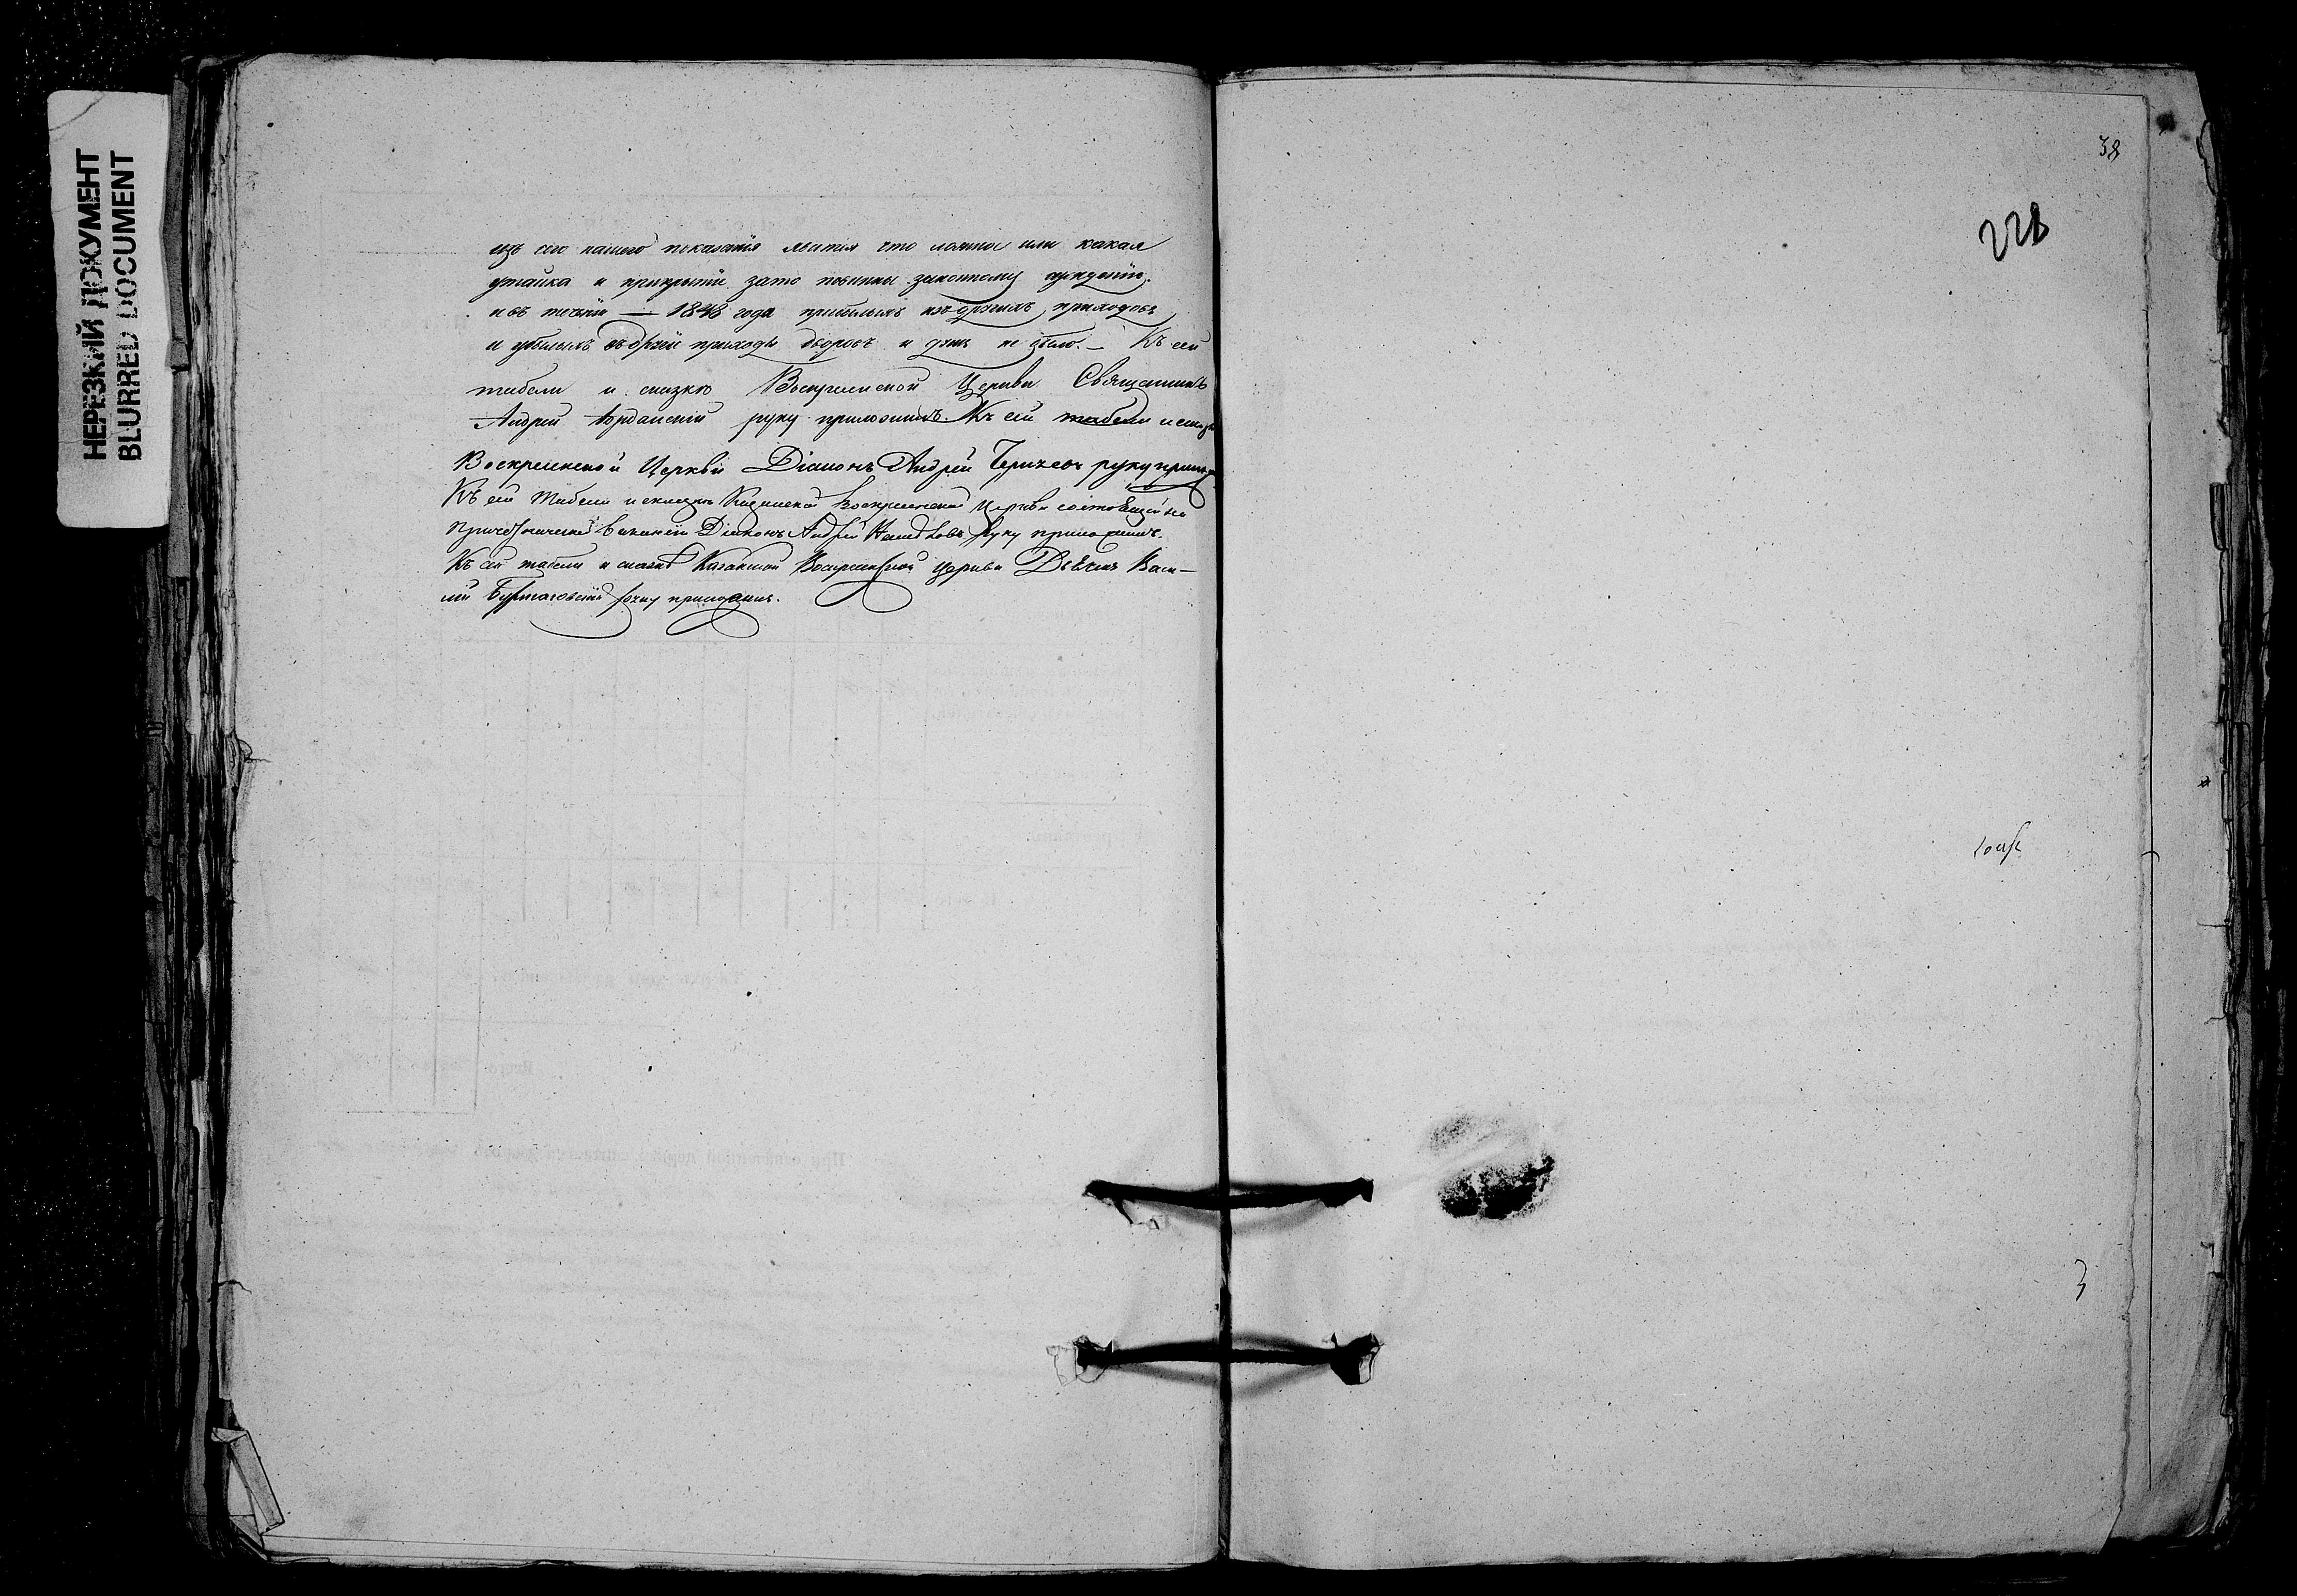 НЕРЕЗКИЙ ДОКУМЕНТ
BLURRED DOCUMENT
изъ сего нашего показанія явится что ложное или какая
утайка и прикрытіе зато повинны законному сужденію.
и въ теченіи — 1848 года прибылыхъ изъ другихъ приходовъ
и убылыхъ въ другіе приходы дворовъ и душъ не было. — Къ сей
табели и сказкѣ Воскресенской Церкви Священникъ
Андрей руку приложилъ. Къ сей табели и
Воскресенской Церкви Діаконъ Андрей руку
Къ сей табели и сказкѣ Воскресенской Церкви состоящій на
Причетнической Вакансіи Діаконъ Андрей руку приложилъ.
Къ сей табели и сказкѣ Воскресенской Церкви Дьячекъ Васи-
лій руку приложилъ.
38
228
3